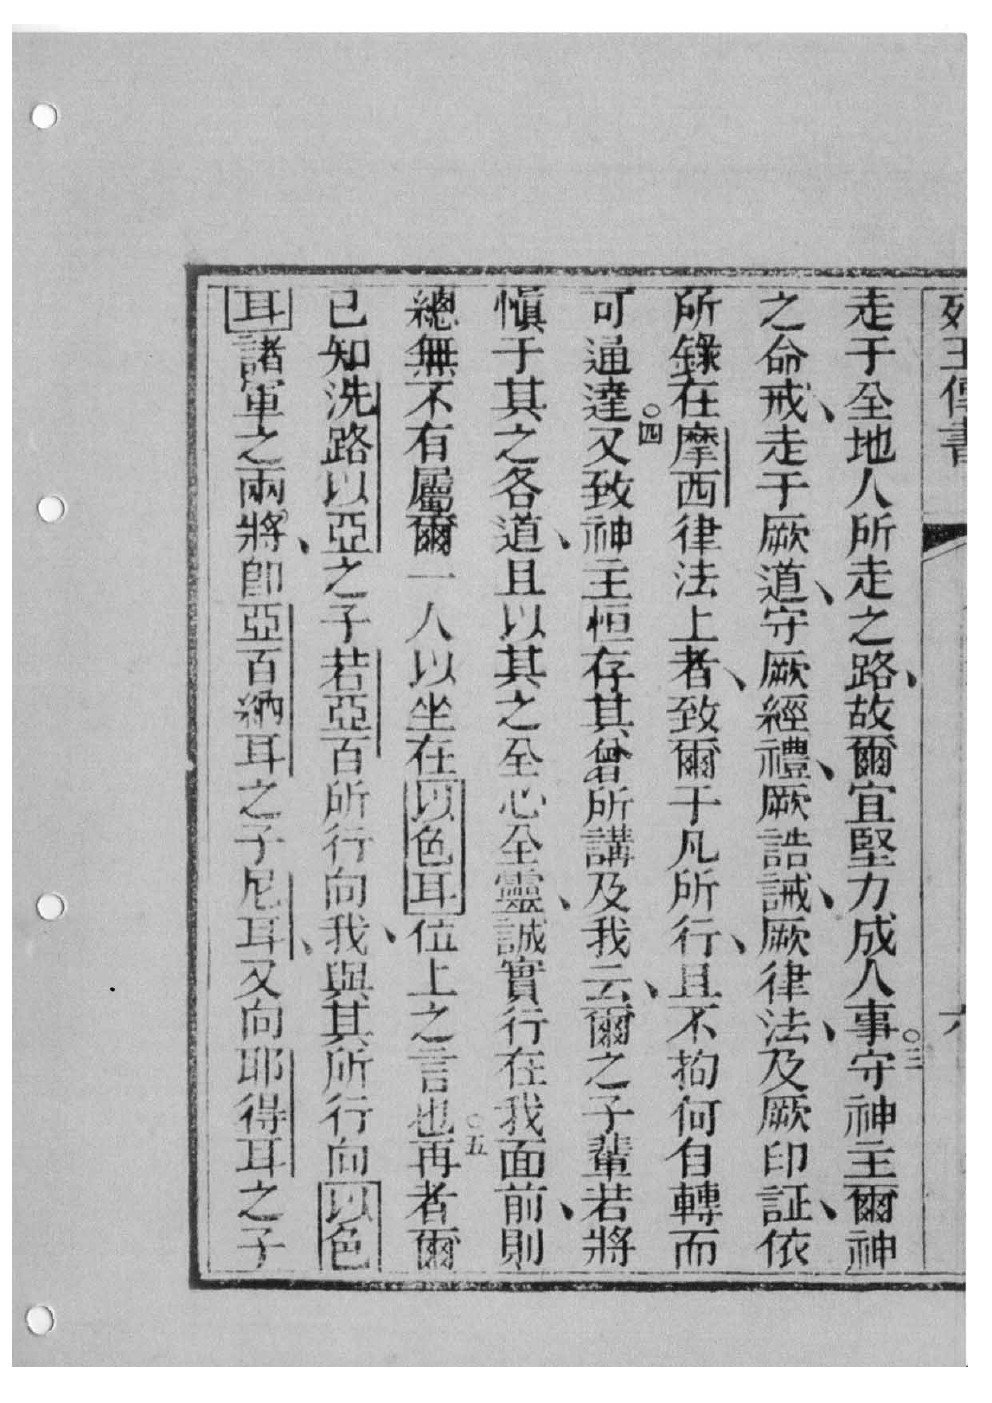 列王傳書 六
走于全地人所走之路、故爾宜堅力成人事○三守神主爾神
之命戒、走于厥道、守厥經禮、厥誥誡、厥律法、及厥印証、依
所錄在摩西律法上者、致爾于凡所行、且不拘何自轉而
可通達○四又致神主恒存其曾所講及我云、爾之子輩若將
愼于其之各道、且以其之全心全靈、誠實行在我面前、則
總無不有屬爾一人以坐在以色耳位上之言也○五再者爾
已知洗路以亞之子若亞百所行向我、與其所行向以色
耳諸軍之兩將、卽亞百納耳之子尼耳、又向耶得耳之子